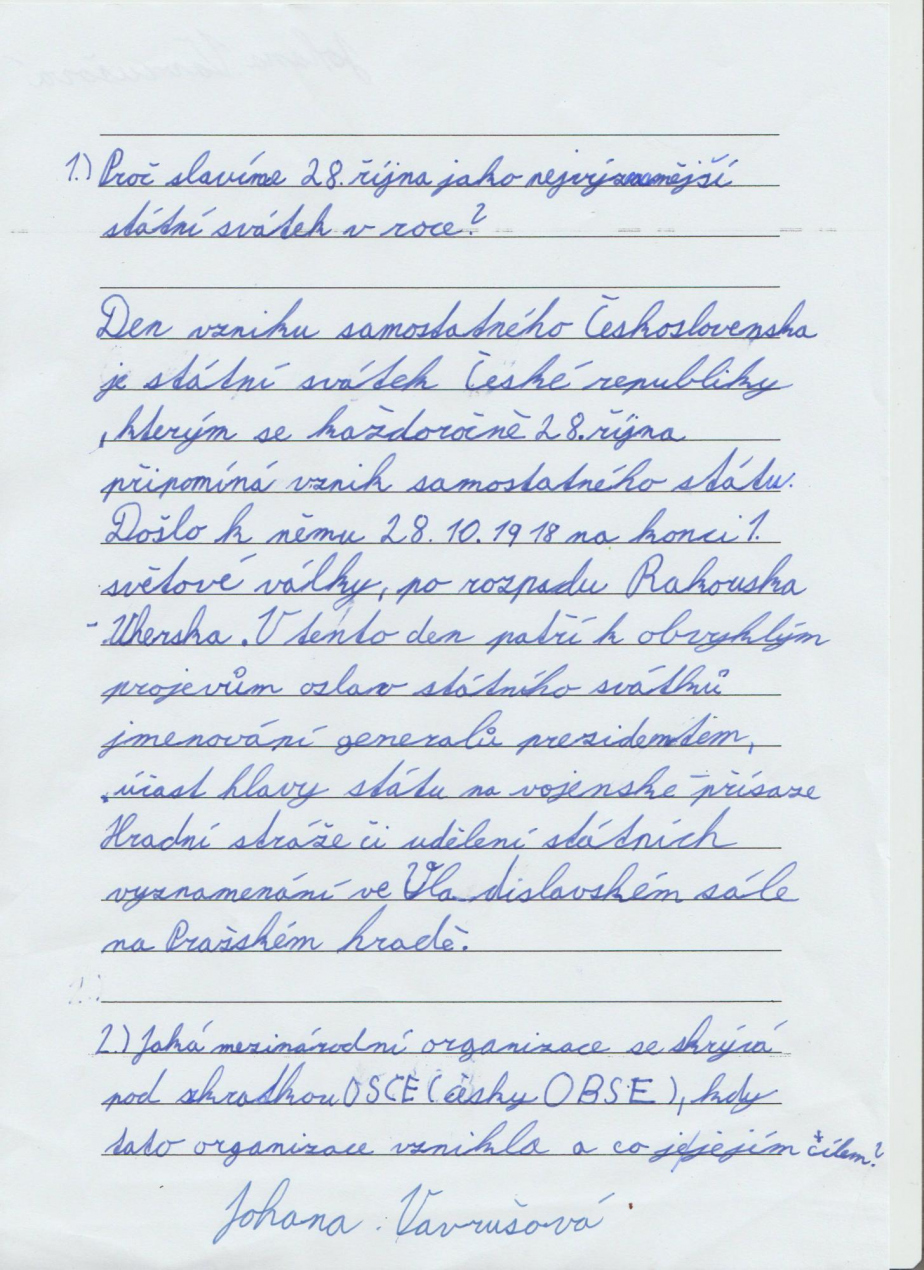 1.) Proč slavíme 28. října jako nejvýznamnější
státní svátek v roce?
Den vzniku samostatného Československa
je státní svátek České republiky
, kterým se každoročně 28. října
připomíná vznik samostatného státu.
Došlo k němu 28. 10. 1918 na konci 1.
světové války, po rozpadu Rakouska
- Uherska. V tento den patří k obvyklým
projevům oslav státního svátků
jmenování generalů prezidentem,
účast hlavy státu na vojenské přísaze
Hradní stráže či udělení státních
vyznamenání ve Vladislavském sále
na Pražském hradě.
2.) Jaká mezinárodní organizace se skrývá
pod zkratkou OSCE (česky OBSE), kdy
tato organizace vznikla a co je jejím čílem?
Johana Vavrušová